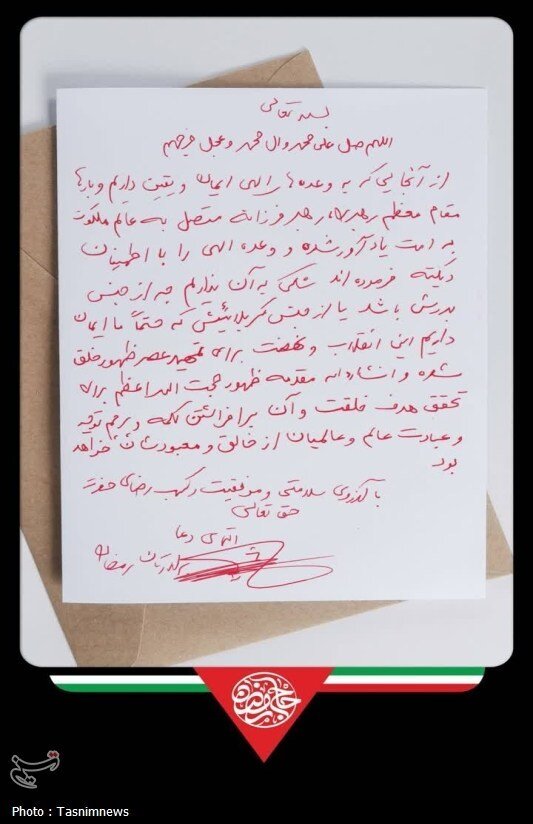 بسمه تعالی
اللهم صل علی محمد و آل محمد و عجل فرجهم
از آنجایی که به وعده های الهی ایمان و یقین داریم و بارها
مقام معظم رهبری، رهبر فرزانه متصل به عالم ملکوت
به امت یادآور شده و وعده الهی را با اطمینان
دیکته فرموده اند شکی به آن نداریم چه از جنس
بدرش باشد یا از جنس کربلائیش که حتماً ما ایمان
داریم این انقلاب و نهضت برای تمهید عصر ظهور خلق
شده و انشاءاله مقدمه ظهور حجت الله اعظم برای
تحقق هدف خلقت و آن برافراشتن کلمه و پرچم توحید
و عبادت عالم و عالمیان از خالق و معبودشان خواهد
بود
با آرزوی سلامتی و موفقیت کسب رضای حضرت
حق تعالی
التماس دعا
رمضان
حاج رمضان
تسنیم
Photo : Tasnimnews